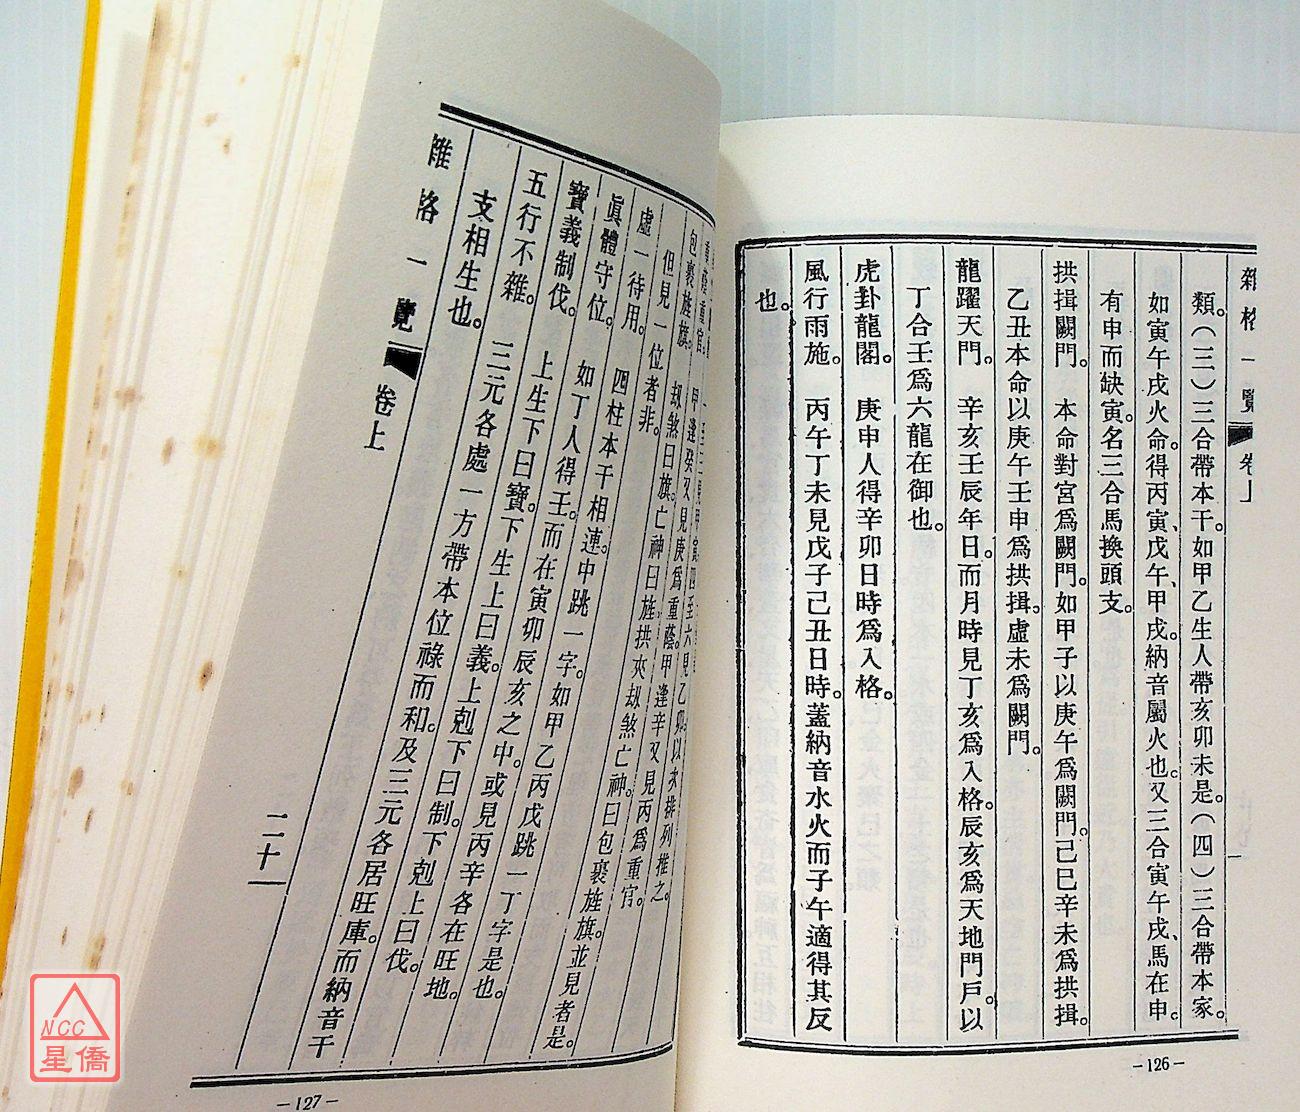 雜格一覽
卷上
類。(三)三合帶本干。如甲乙生人帶亥卯未是。(四)三合帶本家。
如寅午戌火命。得丙寅、戊午、甲戌。納音屬火也。又三合寅午戌、馬在申。
有申而缺寅。名三合馬換頭支。
拱揖闕門。 本命對宮爲闕門。如甲子以庚午爲闕門。己巳辛未爲拱揖。
乙丑本命以庚午壬申爲拱揖。虛未爲闕門。
龍躍天門。 辛亥壬辰年日。而月時見丁亥爲入格。辰亥爲天地門戶。以
丁合壬爲六龍在御也。
虎卦龍閣。 庚申人得辛卯日時爲入格。
風行雨施。 丙午丁未見戊子己丑日時。蓋納音水火而子午適得其反
也。
—126—
重蔭重官。 甲逢癸又見庚爲重蔭甲逢辛又見丙爲重官。
包裹旌旗。 劫煞曰旗。亡神曰旌拱夾劫煞亡神曰包裹旌旗。並見者是。
但見一位者非。
虛一待用。 四柱本干相連。中跳一字。如甲乙丙戊跳一丁字是也。
眞體守位。 如丁人得壬。而在寅卯辰亥之中。或見丙辛各在旺地。
寶義制伐。 上生下曰寶。下生上曰義。上剋下曰制。下剋上曰伐。
五行不雜。 三元各處一方帶本位祿而和。及三元各居旺庫。而納音干
支相生也。
雜格一覽
卷上
二十一
—127—
NCC
星僑